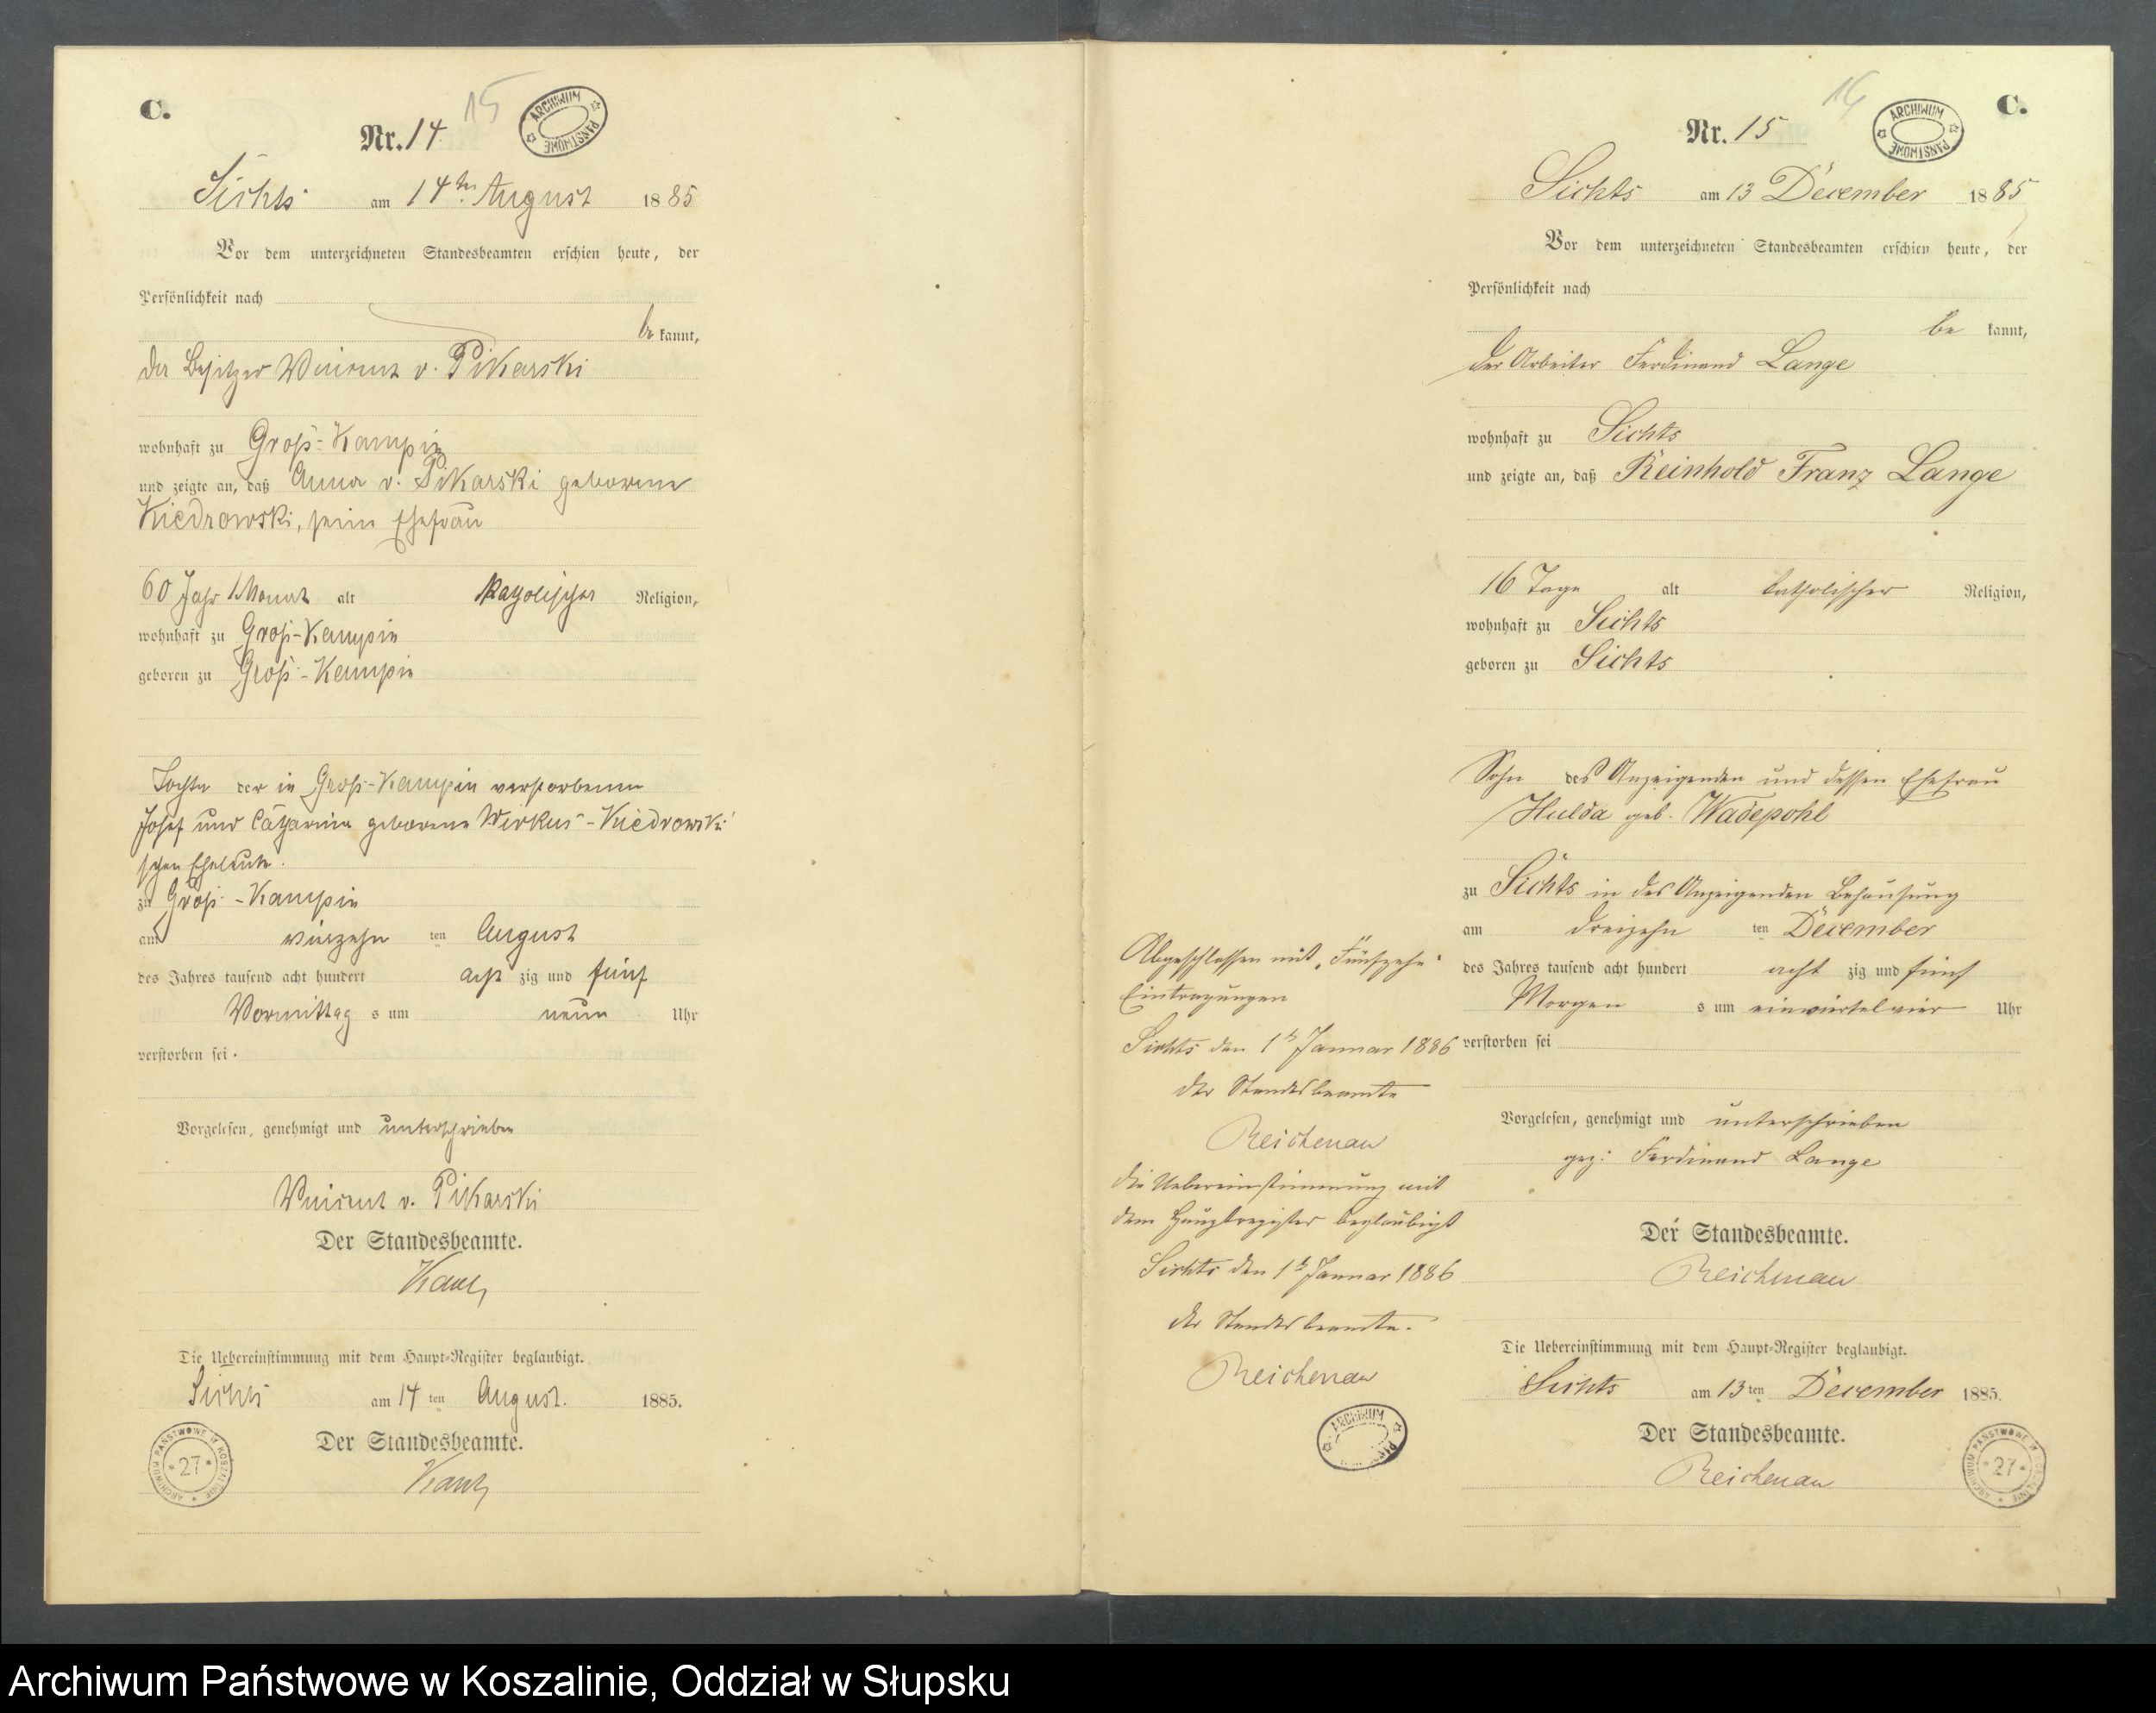 C.
15
Nr. 14.
ARCHIWUM PAŃSTWOWE
Sichts am 14ten August 1885
Vor dem unterzeichneten Standesbeamten erschien heute, der
Persönlichkeit nach
be kannt,
der Besitzer Vincent v. Pikarski
wohnhaft zu Groß-Kampin
und zeigte an, daß Anna v. Pikarski geborene
Kiedrowski, seine Ehefrau
60 Jahr 1 Monat alt katholischer Religion,
wohnhaft zu Groß-Kampin
geboren zu Groß-Kampin
Tochter der in Groß-Kampin verstorbenen
Josef und Catharina geborene Wirkus-Kiedrowski
schen Eheleute.
zu Groß-Kampin
am vierzehn ten August
des Jahres tausend acht hundert acht zig und fünf
Vormittag s um neun Uhr
verstorben sei.
Vorgelesen, genehmigt und unterschrieben
Vincent v. Pikarski
Der Standesbeamte.
Die Uebereinstimmung mit dem Haupt-Register beglaubigt.
Sichts am 14 ten August. 1885.
Der Standesbeamte.
ARCHIWUM PAŃSTWOWE W KOSZALINIE
*27*
C.
16
Nr. 15
ARCHIWUM PAŃSTWOWE
Sichts am 13 December 1885
Vor dem unterzeichneten Standesbeamten erschien heute, der
Persönlichkeit nach
be kannt,
der Arbeiter Ferdinand Lange
wohnhaft zu Sichts
und zeigte an, daß Reinhold Franz Lange
16 Tage alt katholischer Religion,
wohnhaft zu Sichts
geboren zu Sichts
Sohn des Anzeigenden und dessen Ehefrau
Hulda geb. Wadepohl
zu Sichts in des Anzeigenden Behausung
am dreizehn ten December
des Jahres tausend acht hundert acht zig und fünf
Morgen s um einviertelvier Uhr
verstorben sei
Vorgelesen, genehmigt und unterschrieben
gez: Ferdinand Lange
Der Standesbeamte.
Reichenau
Die Uebereinstimmung mit dem Haupt-Register beglaubigt.
Sichts am 13 ten December 1885.
Der Standesbeamte.
Reichenau
ARCHIWUM PAŃSTWOWE W KOSZALINIE
*27*
Abgeschlossen mit „Fünfzehn“
Eintragungen
Sichts den 1t Januar 1886
der Standesbeamte
Reichenau
die Uebereinstimmung mit
dem Hauptregister beglaubigt
Sichts den 1t Januar 1886
der Standesbeamte.
Reichenau
ARCHIWUM
Archiwum Państwowe w Koszalinie, Oddział w Słupsku